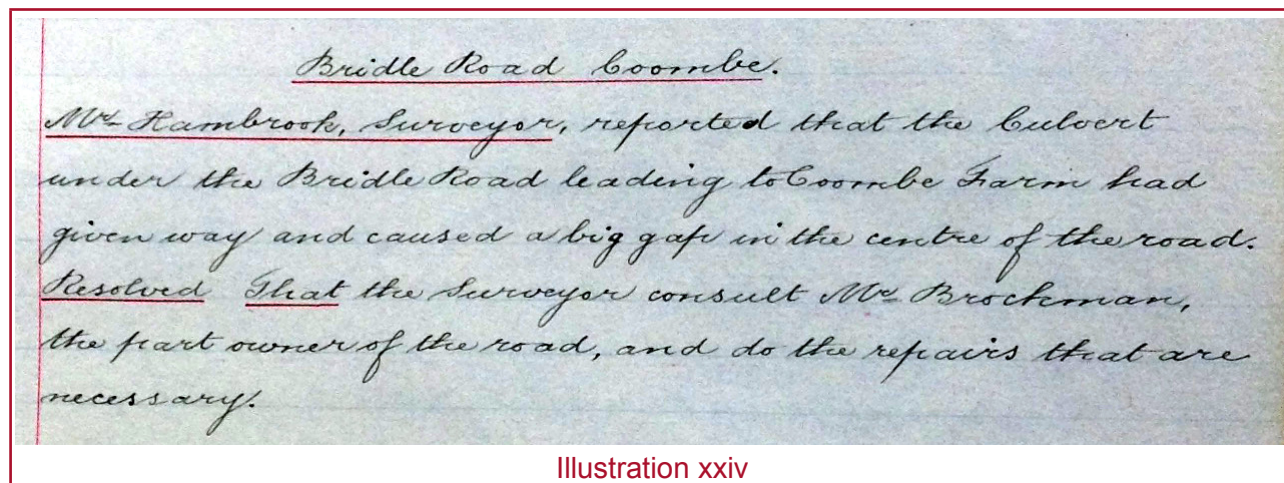 Bridle Road Coombe.
Mr Hambrook, Surveyor, reported that the Culvert
under the Bridle Road leading to Coombe Farm had
given way and caused a big gap in the centre of the road.
Resolved That the Surveyor consult Mr Brockman,
the part owner of the road, and do the repairs that are
necessary.
Illustration xxiv